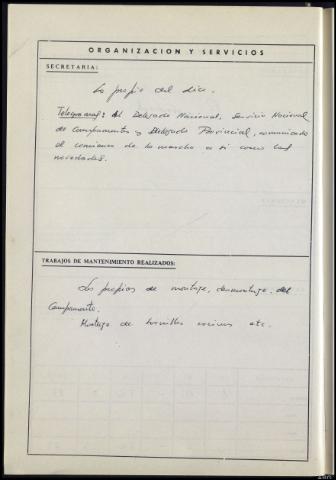 ORGANIZACION Y SERVICIOS
SECRETARIA:
Lo propio del dia.
Telegramas: Al Delegado Nacional, Servicio Nacional
de Campamentos y Delegado Provincial, comunicando
el comienzo de la marcha asi como las
novedades.
TRABAJOS DE MANTENIMIENTO REALIZADOS:
Los propios de montaje, desmontaje del
Campamento.
Montaje de hornillos cocinas etc.